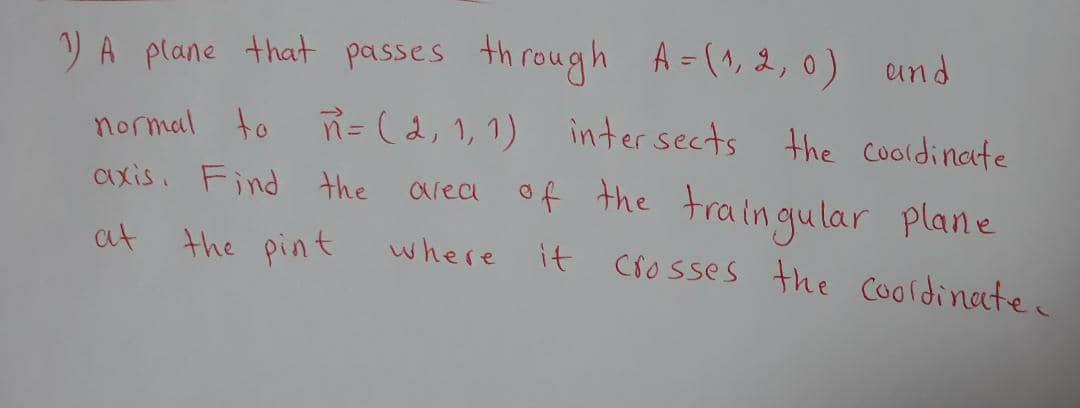 1) A plane that passes through A = (1, 2, 0) and
normal to n⃗ = (2, 1, 1) intersects the coordinate
axis. Find the area of the traingular plane
at the pint where it crosses the coordinate.